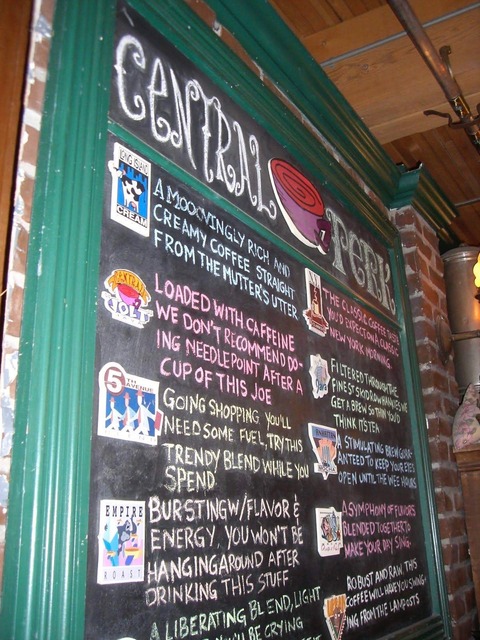 CENTRAL PERK
LONG ISLAND
CREAM
A MOOOVINGLY RICH AND
CREAMY COFFEE STRAIGHT
FROM THE MUTTER'S UTTER
JOLT
LOADED WITH CAFFEINE
WE DON'T RECOMMEND DO-
ING NEEDLEPOINT AFTER A
CUP OF THIS JOE
5TH AVENUE
GOING SHOPPING YOU'LL
NEED SOME FUEL, TRY THIS
TRENDY BLEND WHILE YOU
SPEND
EMPIRE
ROAST
BURSTING W/ FLAVOR &
ENERGY, YOU WON'T BE
HANGING AROUND AFTER
DRINKING THIS STUFF
A LIBERATING BLEND, LIGHT
YOU'LL BE CRYING
THE CLASSIC COFFEE TASTE
YOU'D EXPECT ON A CLASSIC
NEW YORK MORNING.
FILTERED THROUGH THE
FINEST SKID ROW HANKIES WE
GET A BREW SO THIN YOU'D
THINK IT'S TEN
A STIMULATING BREW GUAR-
ANTEED TO KEEP YOUR EYES
OPEN UNTIL THE WEE HOURS
A SYMPHONY OF FLAVORS
BLENDED TOGETHER TO
MAKE YOUR DAY SING.
ROBUST AND RAW, THIS
COFFEE WILL HAVE YOU SWING-
ING FROM THE LAMPOSTS